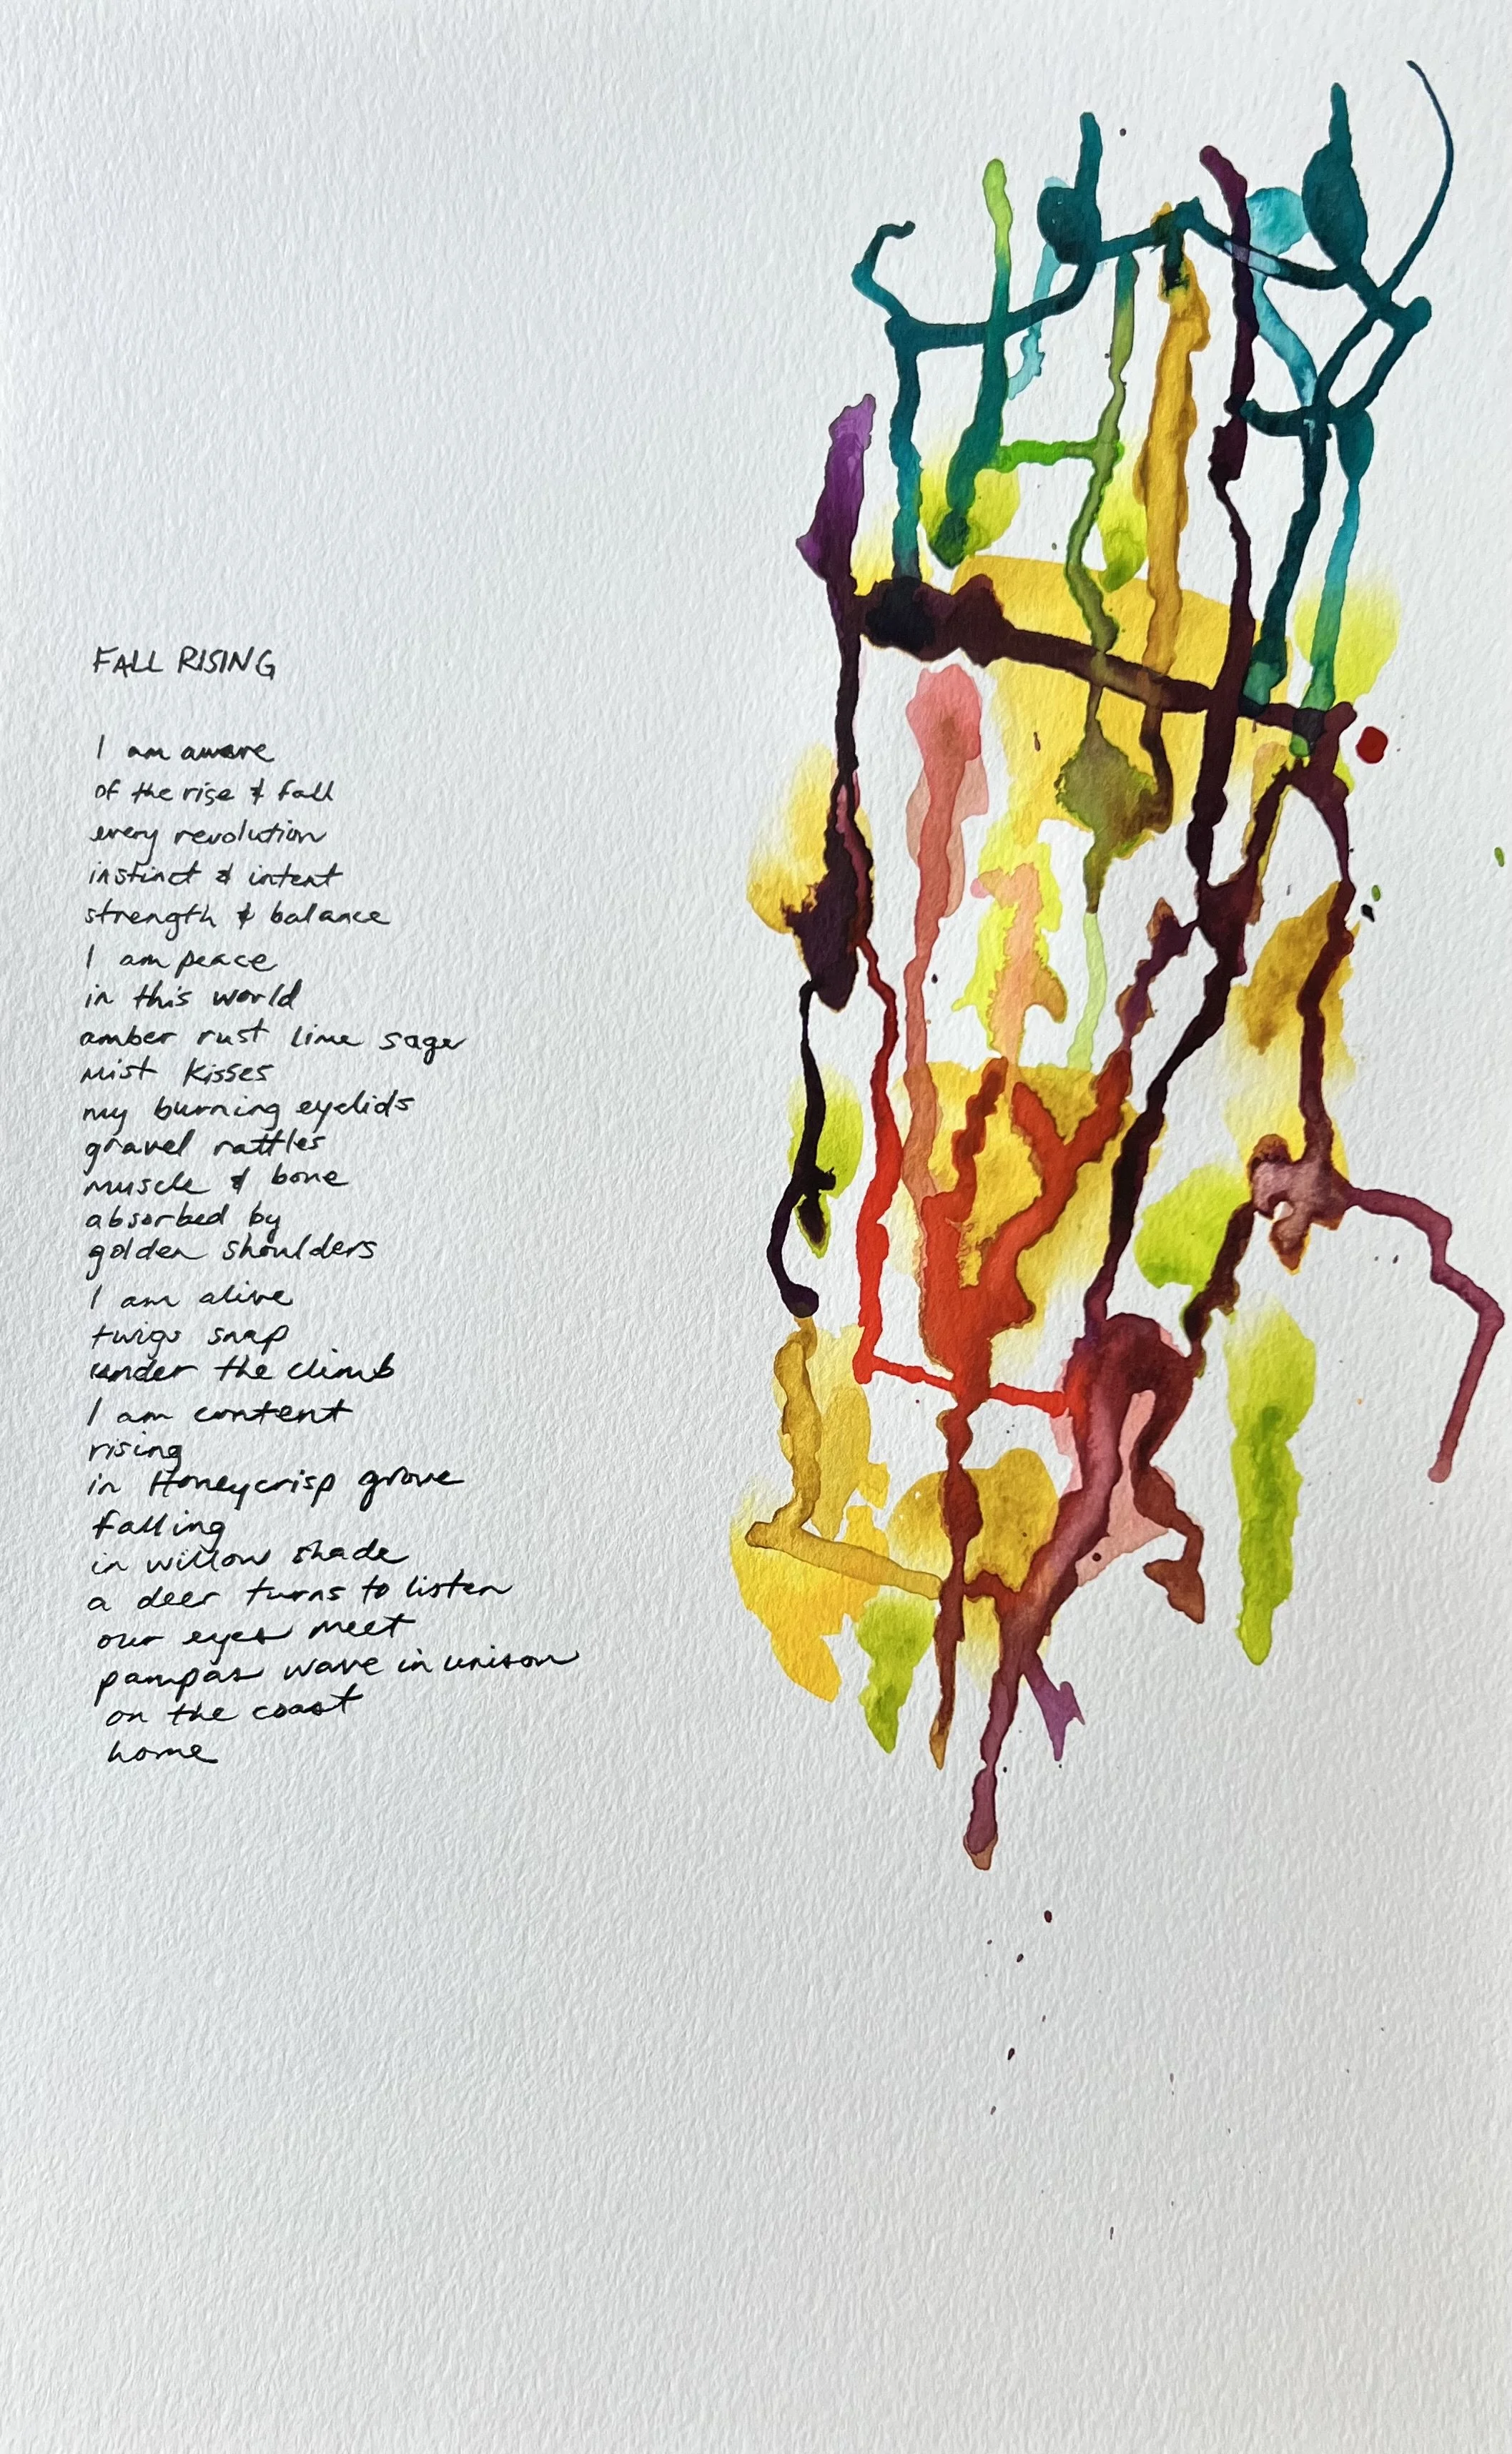 FALL RISING
I am aware
of the rise & fall
every revolution
instinct & intent
strength & balance
I am peace
in this world
amber rust lime sage
mist kisses
my burning eyelids
gravel rattles
muscle & bone
absorbed by
golden shoulders
I am alive
twigs snap
under the climb
I am content
rising
in Honeycrisp grove
falling
in willow shade
a deer turns to listen
our eyes meet
pampas wave in unison
on the coast
home